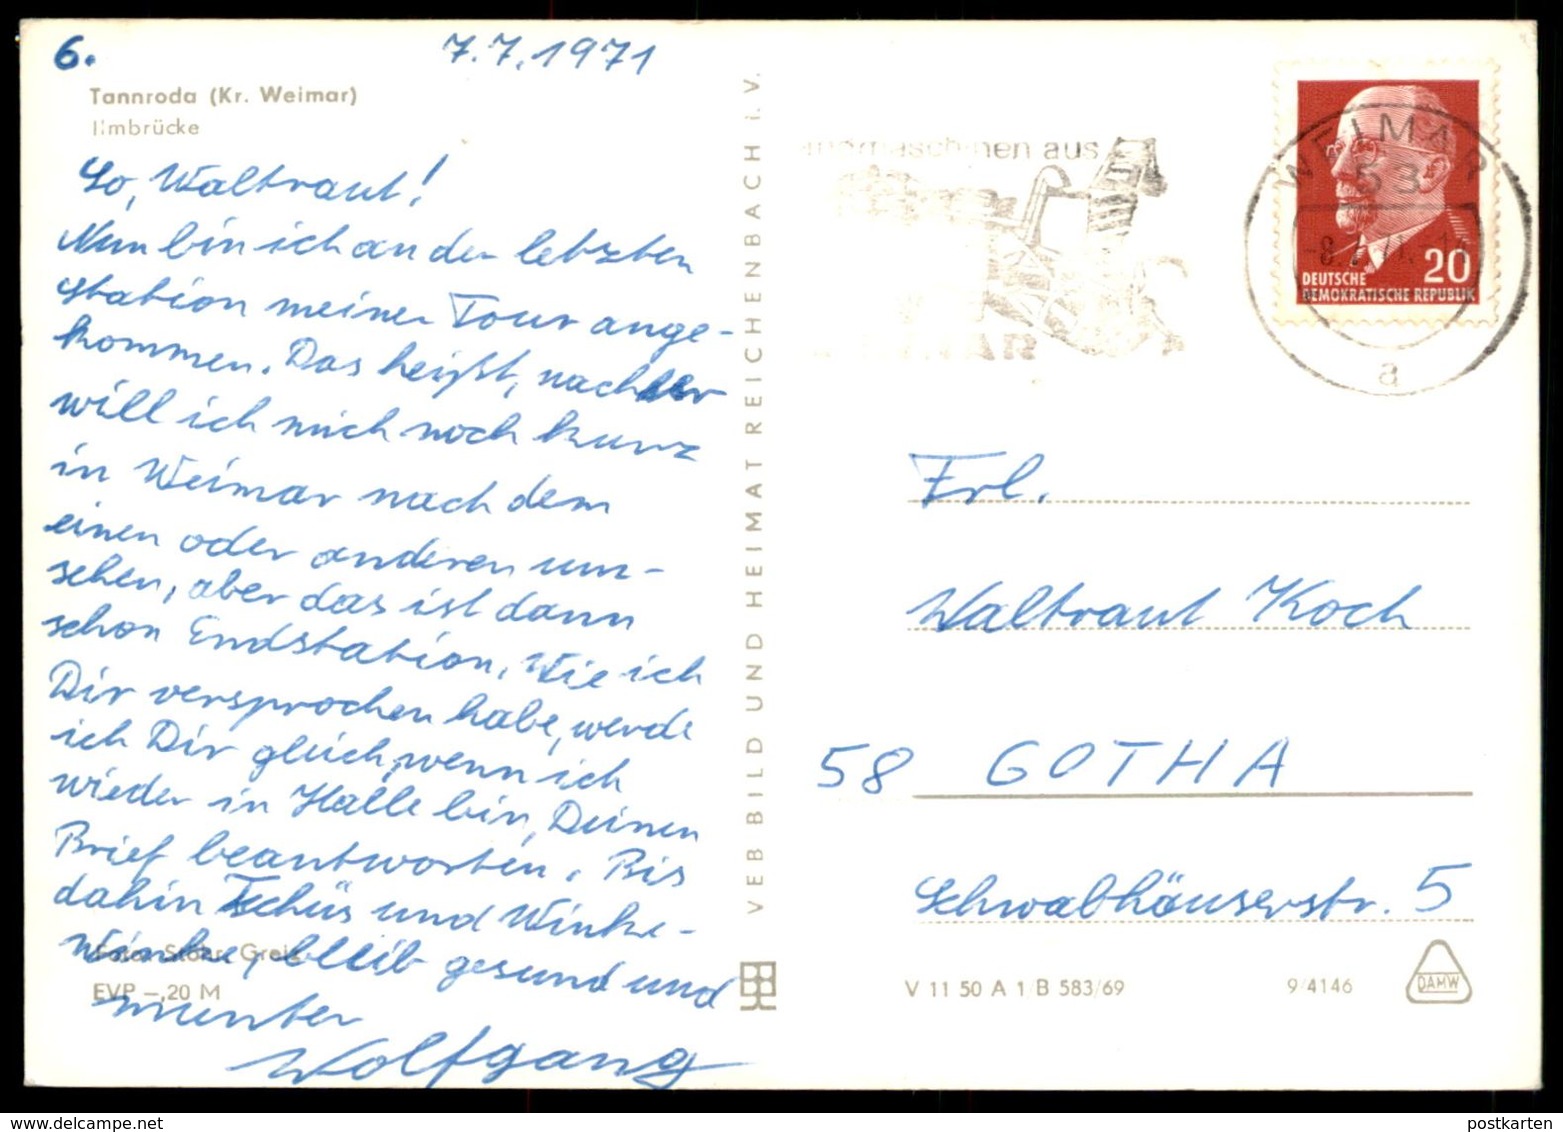 6.
7.7.1971
Tannroda (Kr. Weimar)
Ilmbrücke
So, Waltraut!
Nun bin ich an der letzten
Station meiner Tour ange-
kommen. Das heißt, nachher
will ich mich noch kurz
in Weimar nach dem
einen oder anderen um-
sehen, aber das ist dann
schon Endstation. Wie ich
Dir versprochen habe, werde
ich Dir gleich, wenn ich
wieder in Halle bin, Deinen
Brief beantworten. Bis
dahin Tschüs und Winke-
Winke, bleib gesund und
munter
Wolfgang
Foto: Stöhr, Greiz
EVP -,20 M
VEB BILD UND HEIMAT REICHENBACH i. V.
aus
WEIMAR
WEIMAR
53
-8.7.71.-14
a
20
DEUTSCHE
DEMOKRATISCHE REPUBLIK
Frl.
Waltraut Koch
58 GOTHA
Schwabhäuserstr. 5
V 11 50 A 1/B 583/69
9/4146
DAMW
postkarten